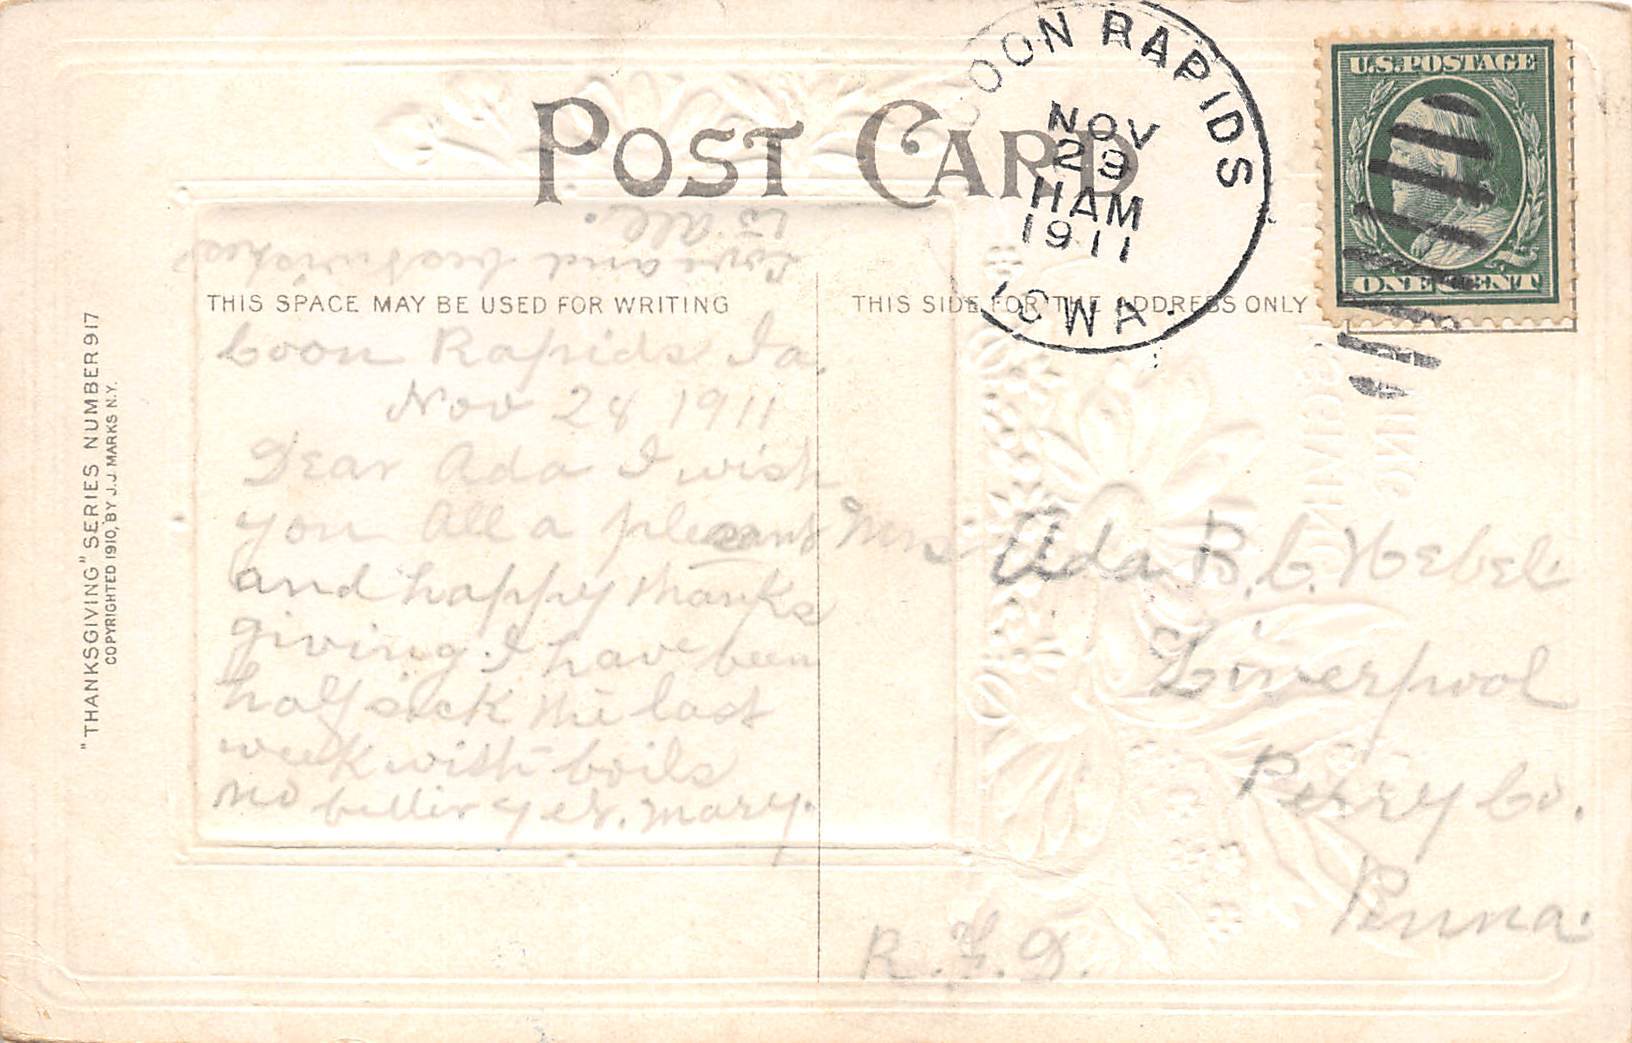 POST CARD
COON RAPIDS
NOV
29
11AM
1911
IOWA.
U.S. POSTAGE
ONE CENT
THIS SPACE MAY BE USED FOR WRITING
THIS SIDE FOR THE ADDRESS ONLY
Coon Rapids Ia.
Nov 28 1911
Dear Ada I wish
you all a pleasant
and happy thanks
giving. I have been
half sick the last
week with boils
no better yet. Mary.
Love and best wishes
to all.
Mrs Ada B. C. Hebel
Liverpool
Perry Co.
Penna.
R.F.D.
"THANKSGIVING" SERIES NUMBER 917
COPYRIGHTED 1910, BY J.J. MARKS N.Y.